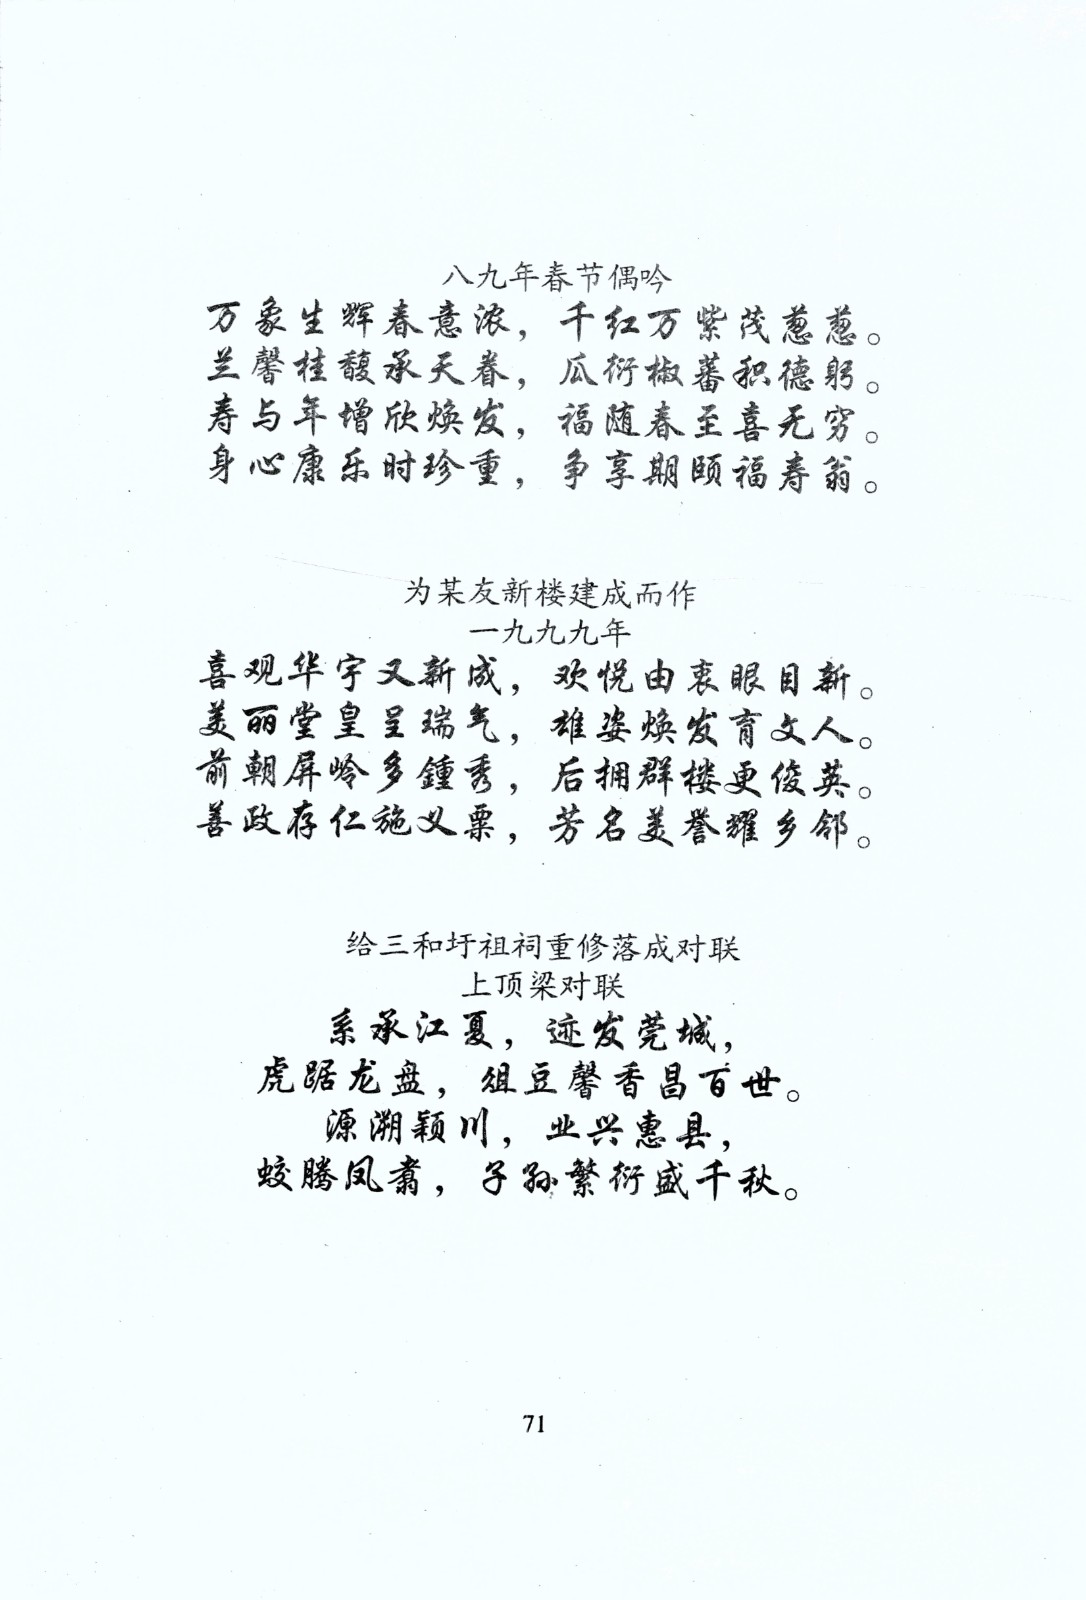 八九年春节偶吟
万象生辉春意浓，千红万紫茂葱葱。
兰馨桂馥承天眷，瓜衍椒蕃积德躬。
寿与年增欣焕发，福随春至喜无穷。
身心康乐时珍重，争享期颐福寿翁。
为某友新楼建成而作
一九九九年
喜观华宇又新成，欢悦由衷眼目新。
美丽堂皇呈瑞气，雄姿焕发育文人。
前朝屏岭多鍾秀，后拥群楼更俊英。
善政存仁施义粟，芳名美誉耀乡邻。
给三和圩祖祠重修落成对联
上顶梁对联
系承江夏，迹发莞城，
虎踞龙盘，俎豆馨香昌百世。
源溯颖川，业兴惠县，
蛟腾凤翥，子孙繁衍盛千秋。
71